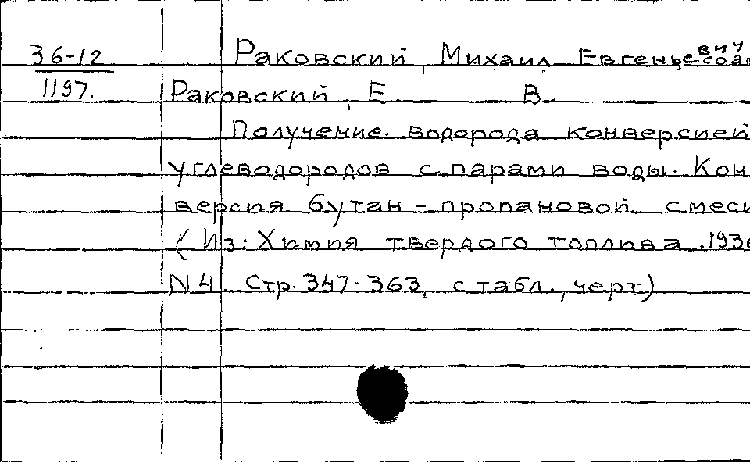 36-12
1197.
Раковский, Михаил Евгеньевич
Раковский, Е В.
Получение водорода конверсией
углеводородов с парами воды. Кон
версия бутан-пропановой смеси
(Из: Химия твердого топлива. 1936
N4. Стр. 347-363, с табл., черт.)